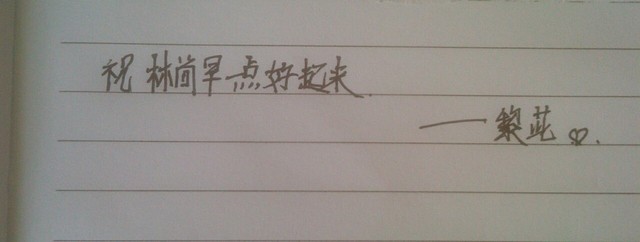 祝 林简早点好起来.
——黎芷♡.